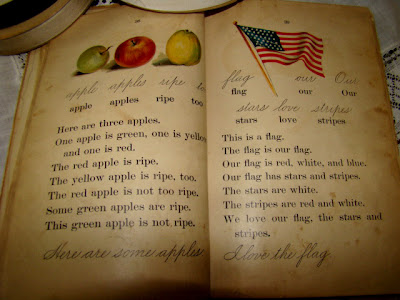 apple apples ripe too
apple apples ripe too
Here are three apples.
One apple is green, one is yellow
and one is red.
The red apple is ripe.
The yellow apple is ripe, too.
The red apple is not too ripe.
Some green apples are ripe.
This green apple is not ripe.
Here are some apples
flag our Our
flag our Our
stars love stripes
stars love stripes
This is a flag.
The flag is our flag.
Our flag is red, white, and blue.
Our flag has stars and stripes.
The stars are white.
The stripes are red and white.
We love our flag, the stars and
stripes.
I love the flag.